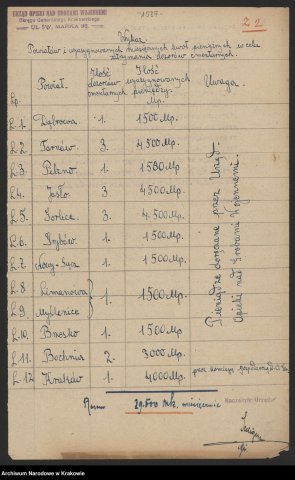 URZĄD OPIEKI NAD GROBAMI WOJENNYMI
Okręgu Generalnego Krakowskiego
UL. ŚW. MARKA 25.
Wykaz
Powiatów i wyasygnowanych miesięcznych kwot pieniężnych w celu
utrzymania dozorów cmentarnych.
Lp. Powiat. Ilość dozorców cmentarnych Ilość wyasygnowanych pieniędzy. Mp. Uwaga.
L. 1. Dąbrowa 1. 1500 Mp.
L. 2. Tarnów 3. 4500 Mp.
L. 3. Pilzno 1. 1500 Mp.
L. 4. Jasło 3. 4500 Mp.
L. 5. Gorlice 3. 4500 Mp.
L. 6. Grybów 1. 1500 Mp.
L. 7. Nowy-Sącz 1. 1500 Mp.
L. 8. Limanowa
L. 9. Myślenice 1. 1500 Mp.
L. 10. Brzesko 1. 1500 Mp.
L. 11. Bochnia 2. 3000 Mp.
L. 12. Kraków 1. 4000 Mp.
Pieniądze doręczane przez Urząd
Opieki nad Grobami Wojennemi.
Razem 29.500 mk. miesięcznie
Naczelnik Urzędu
Archiwum Narodowe w Krakowie